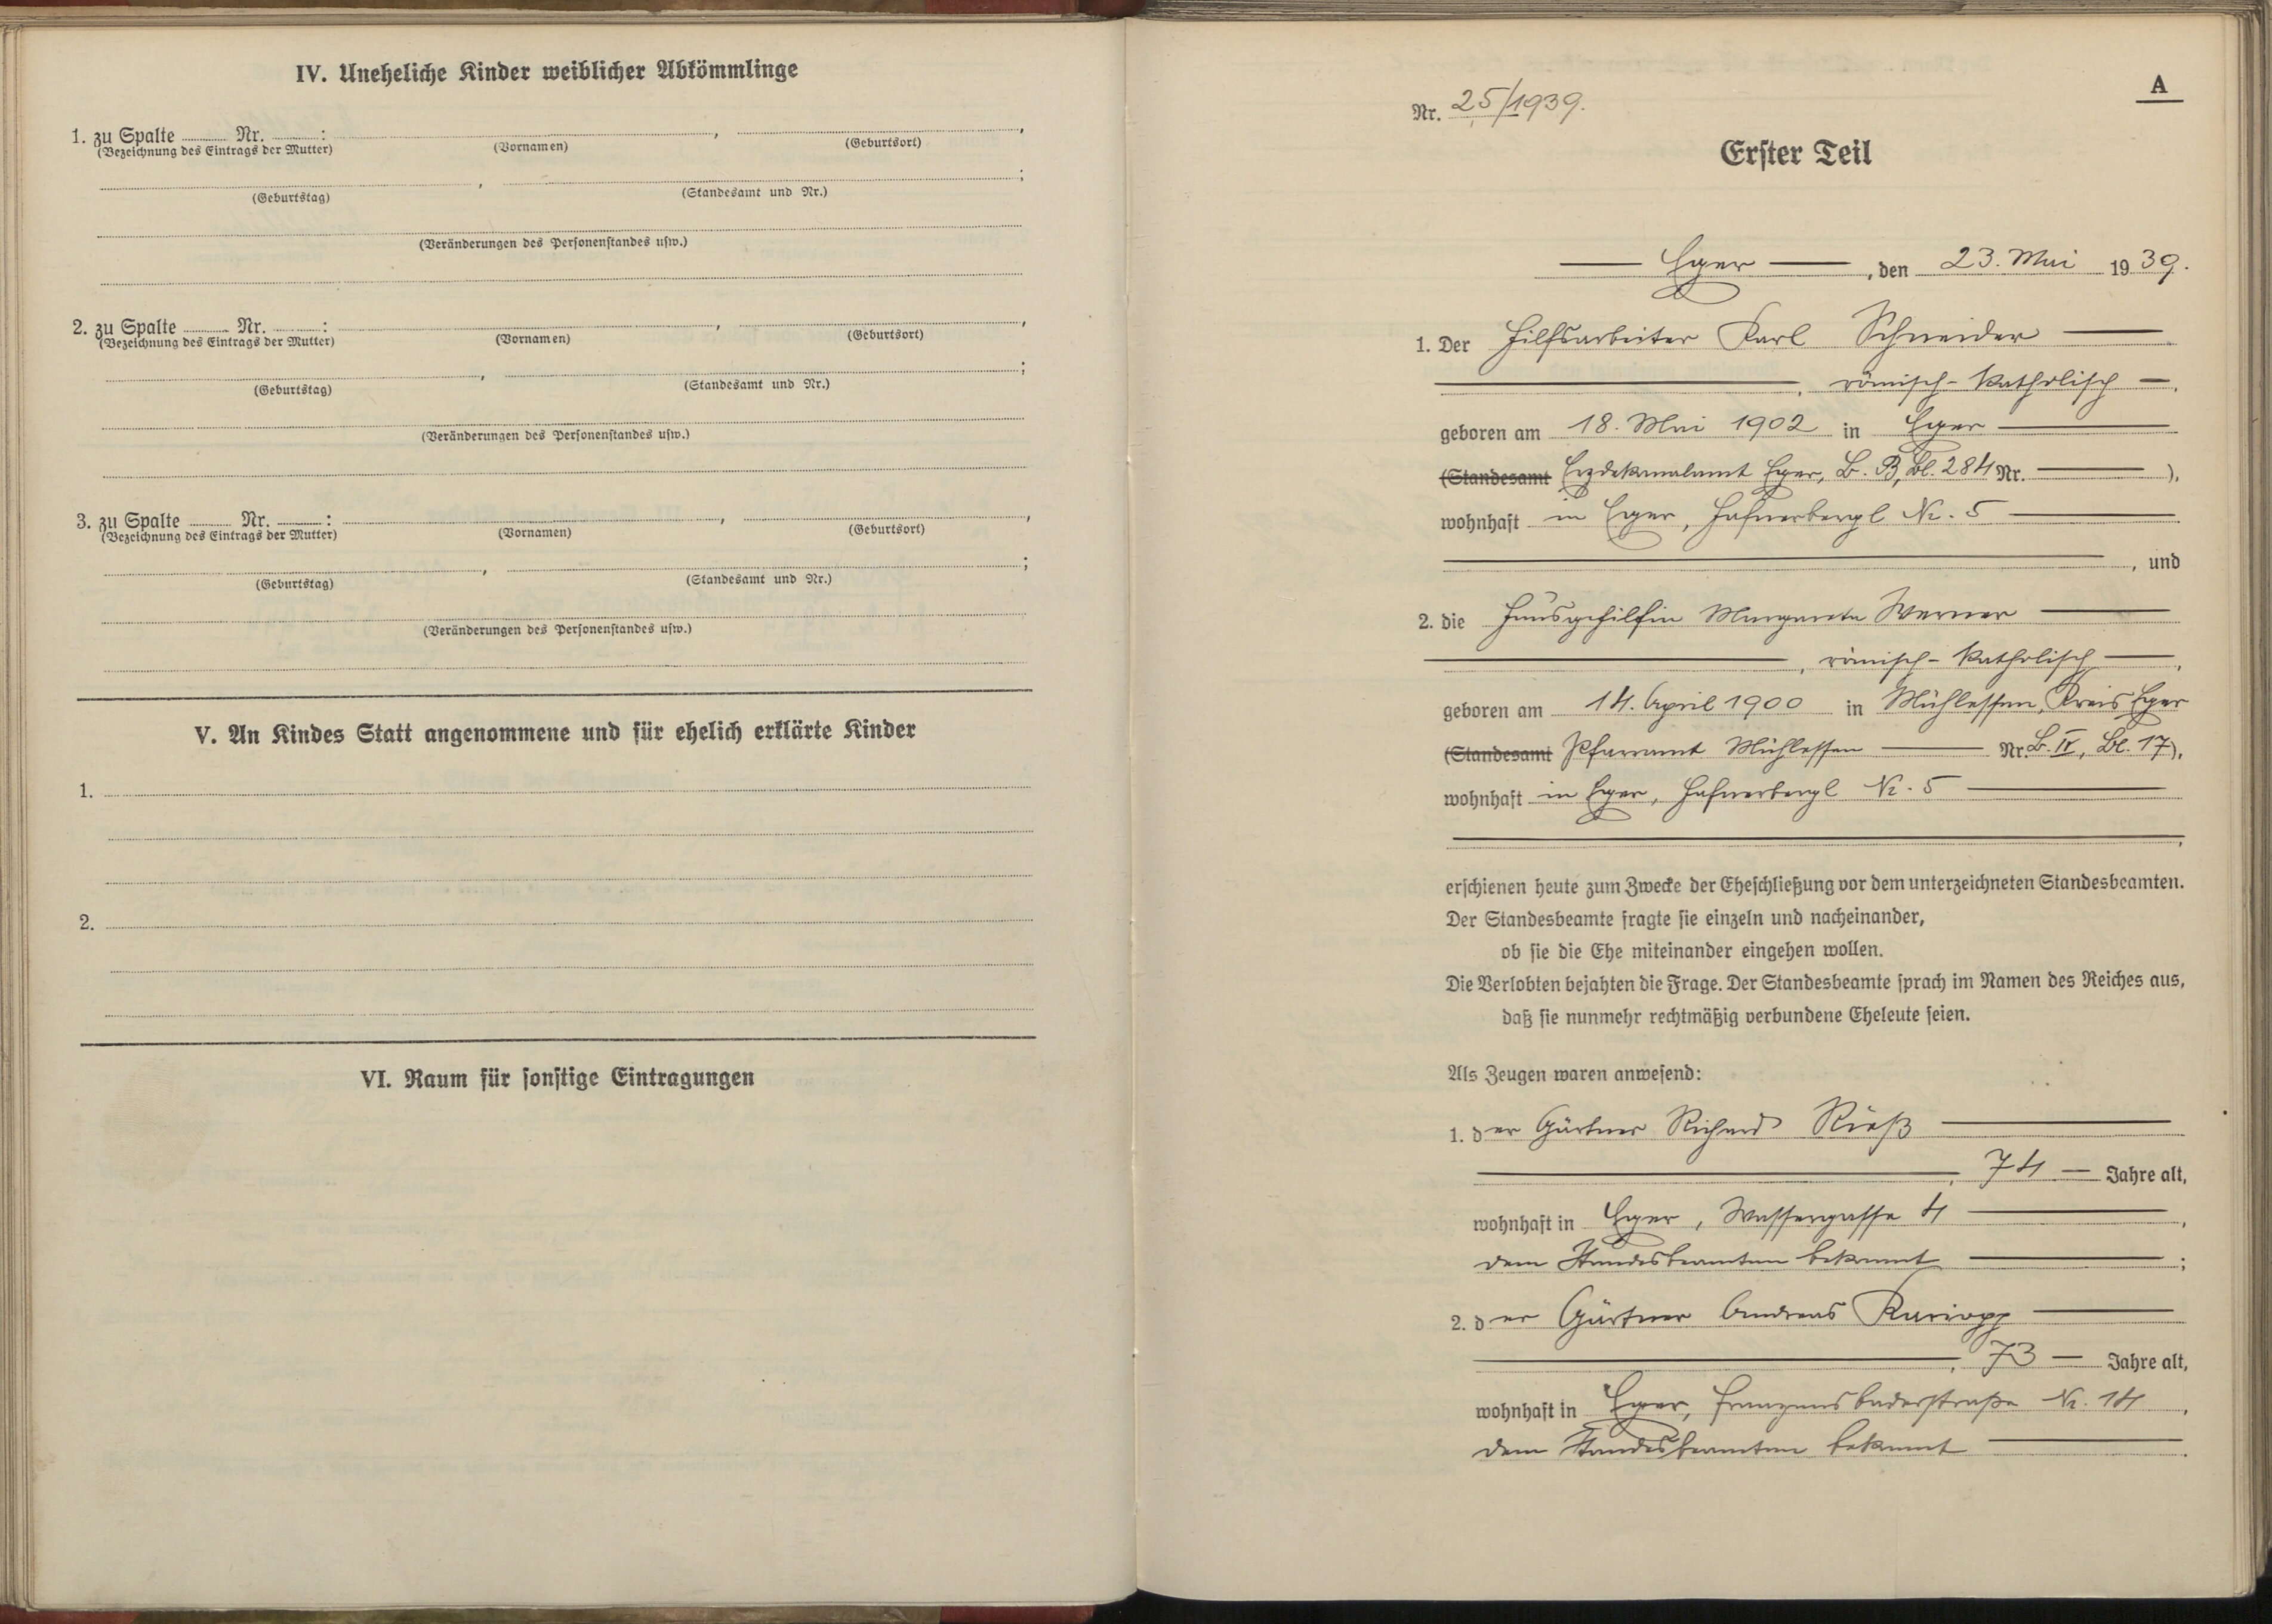 IV. Uneheliche Kinder weiblicher Abkömmlinge
1. zu Spalte ........ Nr. ........ : ........ , ........ ,
(Bezeichnung des Eintrags der Mutter) (Vornamen) (Geburtsort)
........ , ........ ;
(Geburtstag) (Standesamt und Nr.)
(Veränderungen des Personenstandes usw.)
2. zu Spalte ........ Nr. ........ : ........ , ........ ,
(Bezeichnung des Eintrags der Mutter) (Vornamen) (Geburtsort)
........ , ........ ;
(Geburtstag) (Standesamt und Nr.)
(Veränderungen des Personenstandes usw.)
3. zu Spalte ........ Nr. ........ : ........ , ........ ,
(Bezeichnung des Eintrags der Mutter) (Vornamen) (Geburtsort)
........ , ........ ;
(Geburtstag) (Standesamt und Nr.)
(Veränderungen des Personenstandes usw.)
V. An Kindes Statt angenommene und für ehelich erklärte Kinder
1.
2.
VI. Raum für sonstige Eintragungen
A
Nr. 25/1939.
Erster Teil
Eger, den 23. Mai 1939.
1. Der Hilfsarbeiter Karl Schneider
, römisch-katholisch ,
geboren am 18. Mai 1902 in Eger
(Standesamt Erzdekanalamt Eger, B. B, Bl. 284 Nr. ),
wohnhaft in Eger, Hafnerbergl Nr. 5
, und
2. die Hausgehilfin Margareta Werner
, römisch-katholisch ,
geboren am 14. April 1900 in Mühlessen, Kreis Eger
(Standesamt Pfarramt Mühlessen Nr. B. IV, Bl. 17),
wohnhaft in Eger, Hafnerbergl Nr. 5
,
erschienen heute zum Zwecke der Eheschließung vor dem unterzeichneten Standesbeamten.
Der Standesbeamte fragte sie einzeln und nacheinander,
ob sie die Ehe miteinander eingehen wollen.
Die Verlobten bejahten die Frage. Der Standesbeamte sprach im Namen des Reiches aus,
daß sie nunmehr rechtmäßig verbundene Eheleute seien.
Als Zeugen waren anwesend:
1. der Gärtner Richard Rieß
, 74 Jahre alt,
wohnhaft in Eger, Wassergasse 4 ,
dem Standesbeamten bekannt ;
2. der Gärtner Andreas
, 73 Jahre alt,
wohnhaft in Eger, Franzensbaderstraße Nr. 14 ,
dem Standesbeamten bekannt .